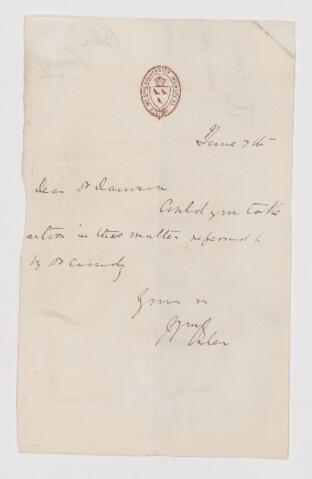 June 7th
Dear Dr Dawson
Could you take
action in this matter referred to
by Dr Cassidy
Yours
Wm Osler